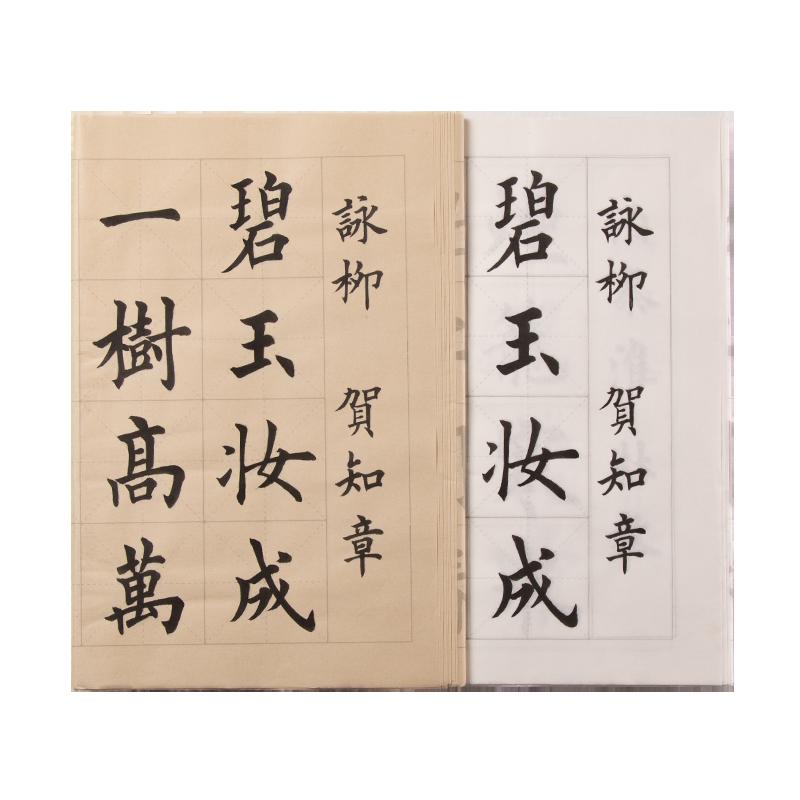 詠柳 賀知章
碧玉妝成
詠柳 賀知章
碧玉妝成
一樹高萬